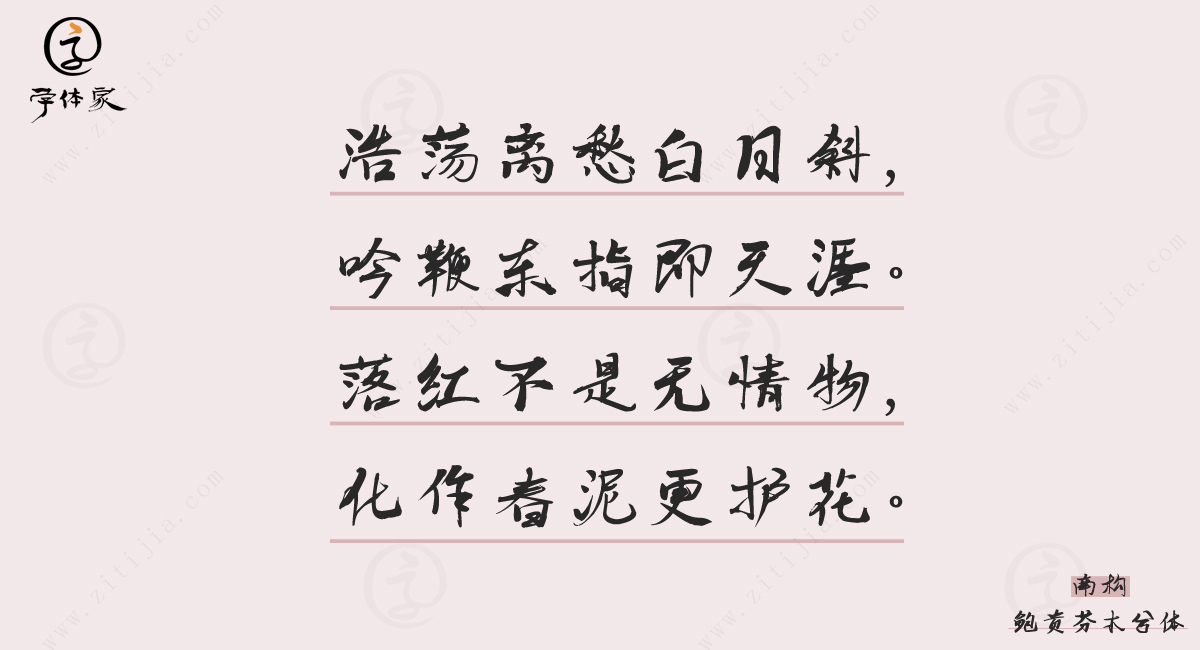 字体家
浩荡离愁白日斜，
吟鞭东指即天涯。
落红不是无情物，
化作春泥更护花。
南构
鲍黄芬木兮体
www.zitijia.com